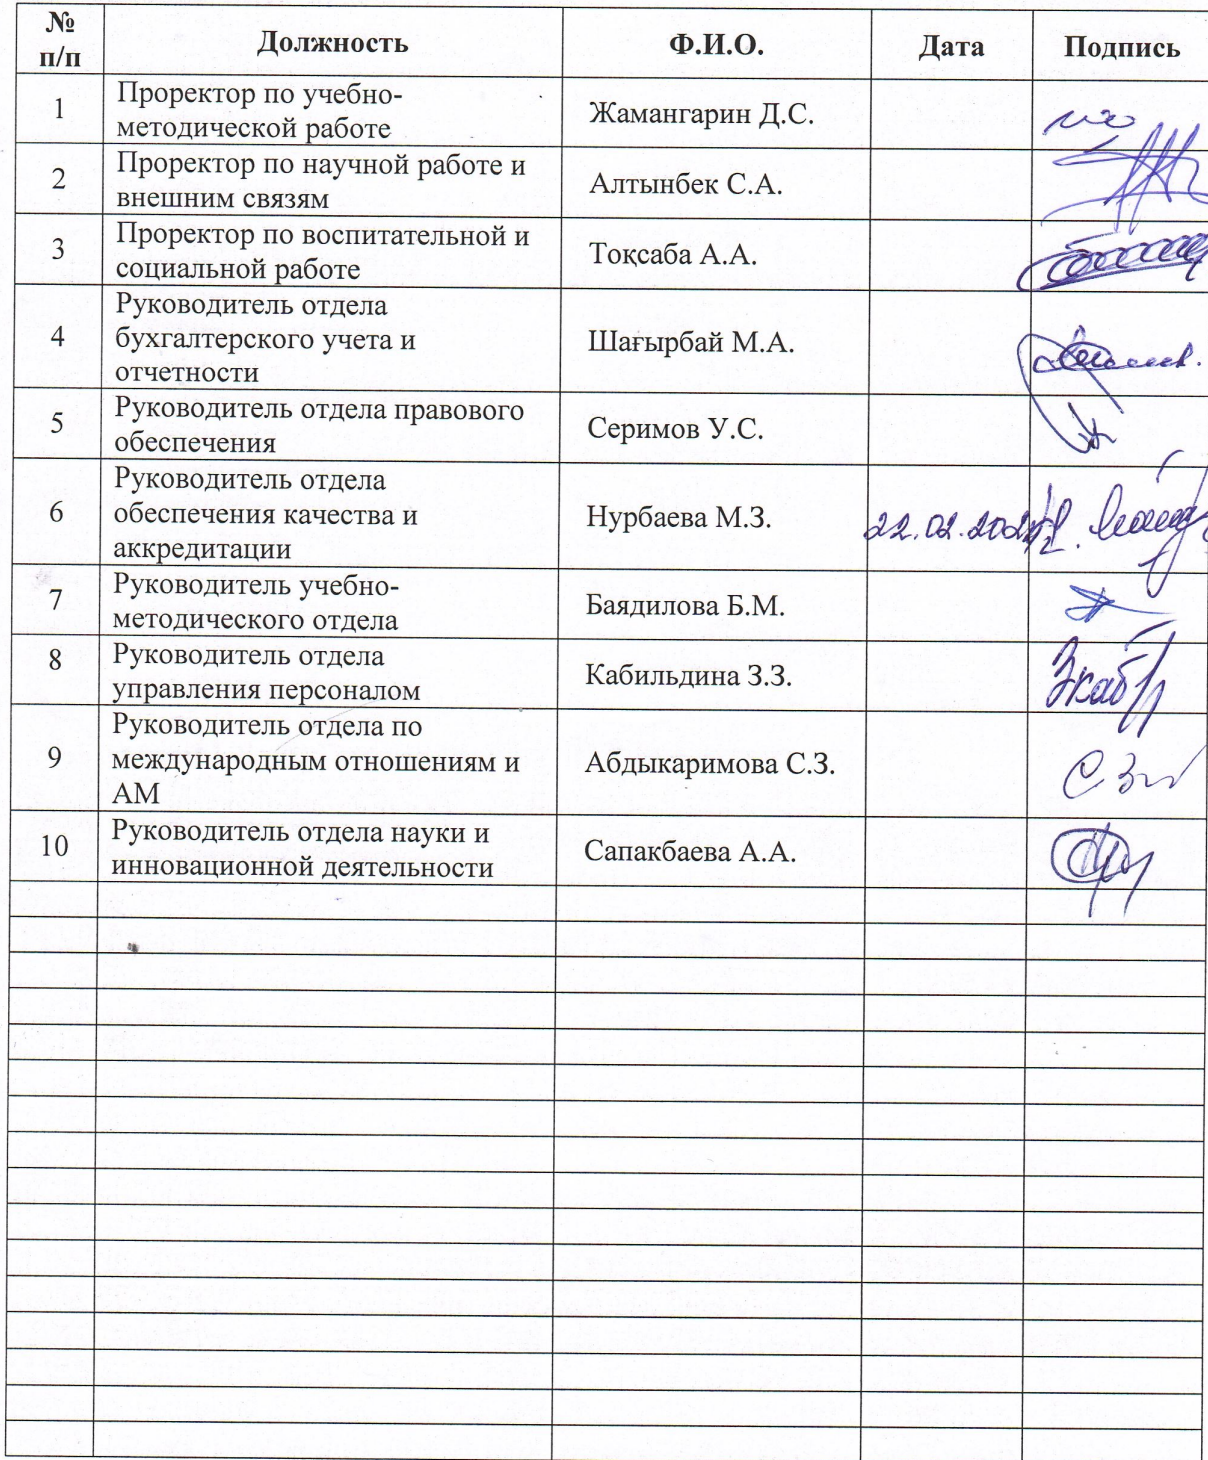 № п/п Должность Ф.И.О. Дата Подпись
1 Проректор по учебно-
методической работе Жамангарин Д.С.
2 Проректор по научной работе и
внешним связям Алтынбек С.А.
3 Проректор по воспитательной и
социальной работе Тоқсаба А.А.
4 Руководитель отдела
бухгалтерского учета и
отчетности Шағырбай М.А.
5 Руководитель отдела правового
обеспечения Серимов У.С.
6 Руководитель отдела
обеспечения качества и
аккредитации Нурбаева М.З. 22.02.
7 Руководитель учебно-
методического отдела Баядилова Б.М.
8 Руководитель отдела
управления персоналом Кабильдина З.З.
9 Руководитель отдела по
международным отношениям и
АМ Абдыкаримова С.З.
10 Руководитель отдела науки и
инновационной деятельности Сапакбаева А.А.